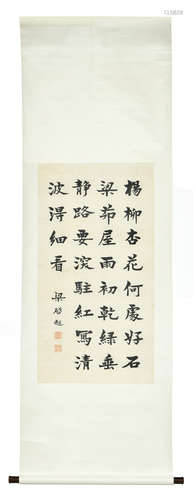 楊柳杏花何處好石
梁茆屋雨初乾綠垂
靜路要深駐紅寫清
波得細看
梁啟超